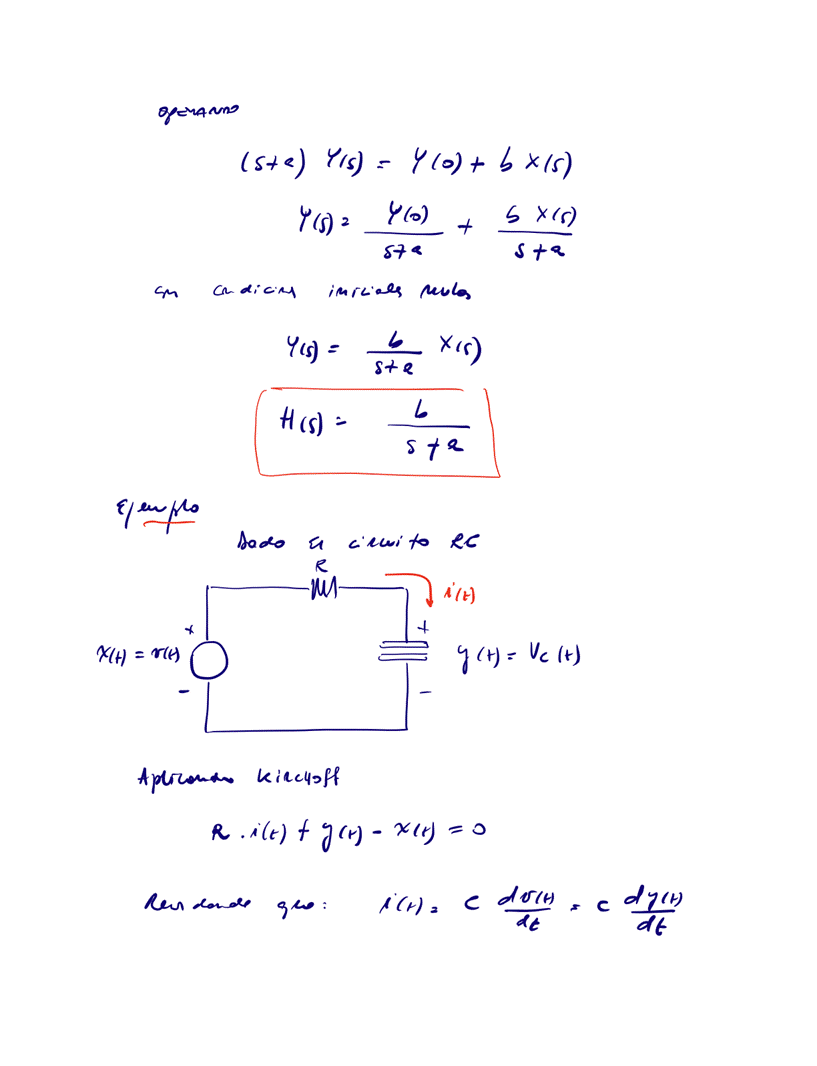 OPERANDO
(s+a) Y(s) = Y(0) + b X(s)
Y(s) = Y(0)/(s+a) + b X(s)/(s+a)
con condiciones iniciales nulas
Y(s) = b/(s+a) X(s)
H(s) = b/(s+a)
Ejemplo
Dado el circuito RC
R
i(t)
+ +
X(t) = v(t) y(t) = Vc(t)
- -
Aplicando Kirchoff
R . i(t) + y(t) - x(t) = 0
Recordando que: i(t) = C dv(t)/dt = C dy(t)/dt